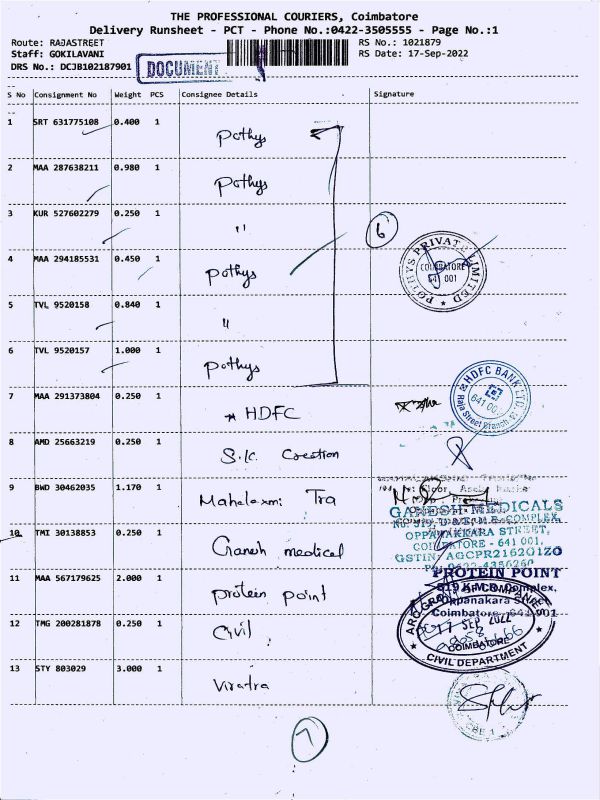 THE PROFESSIONAL COURIERS, Coimbatore
Delivery Runsheet - PCT - Phone No.:0422-3505555 - Page No.:1
Route: RAJASTREET RS No.: 1021879
Staff: GOKILAVANI RS Date: 17-Sep-2022
DRS No.: DCJB102187901 DOCUMENT
S No Consignment No Weight PCS Consignee Details Signature
1 SRT 631775108 0.400 1 Pothys
2 MAA 287638211 0.980 1 Pothys
3 KUR 527602279 0.250 1 "
6
4 MAA 294185531 0.450 1 Pothys
POTHYS PRIVATE LIMITED
COIMBATORE
641 001
5 TVL 9520158 0.840 1 "
6 TVL 9520157 1.000 1 Pothys
7 MAA 291373804 0.250 1 HDFC
HDFC BANK LTD.
Raja Street Branch
8 AMD 25663219 0.250 1 S.K. Creation
9 BWD 30462035 1.170 1 Mahalaxmi Tra
GANESH MEDICALS
OPPANAKKARA STREET,
COIMBATORE - 641 001.
GSTIN: AGCPR2162G1ZO
10 TMI 30138853 0.250 1 Ganesh medical
11 MAA 567179625 2.000 1 protein point
PROTEIN POINT
Oppanakara Street
Coimbatore - 641 001
12 TMG 200281878 0.250 1 Civil
17 SEP 2022
COIMBATORE
CIVIL DEPARTMENT
13 STY 803029 3.000 1
7